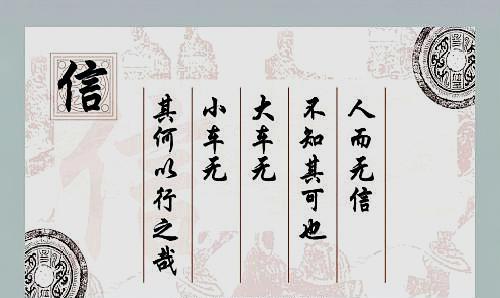 信
人而无信
不知其可也
大车无
小车无
其何以行之哉